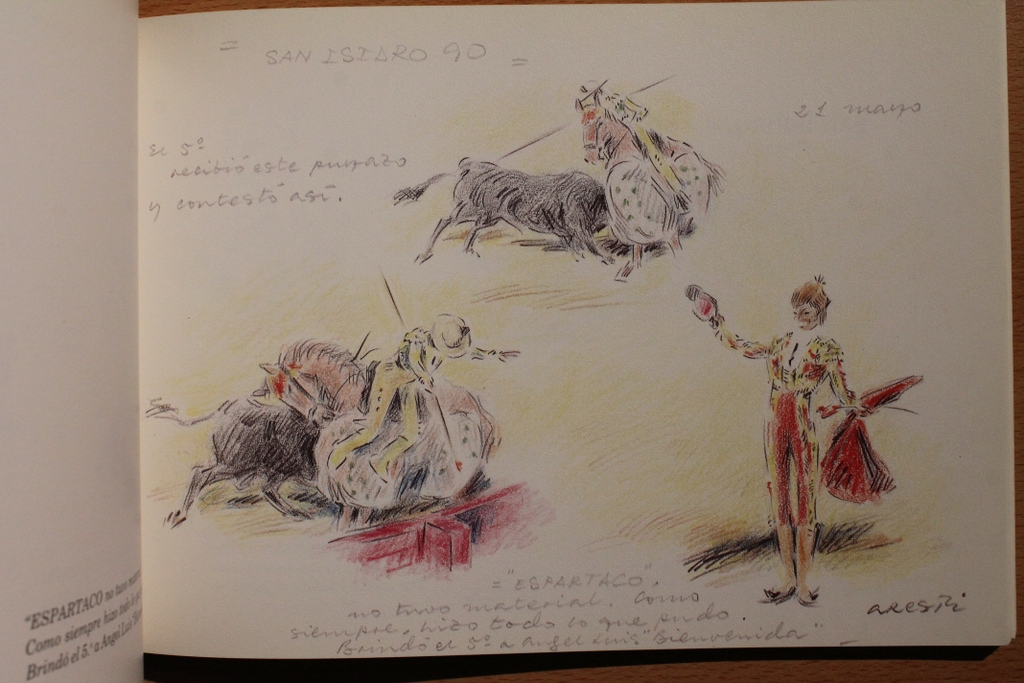 = SAN ISIDRO 90 =
21 mayo
El 5º
recibió este puyazo
y contestó así.
= "ESPARTACO".
no tuvo material. Como
siempre, hizo todo lo que pudo.
Brindó el 5º a Angel Luis "Bienvenida"
ARESTI
"ESPARTACO no tuvo
Como siempre hizo todo lo
Brindó el 5.º a Angel Luis